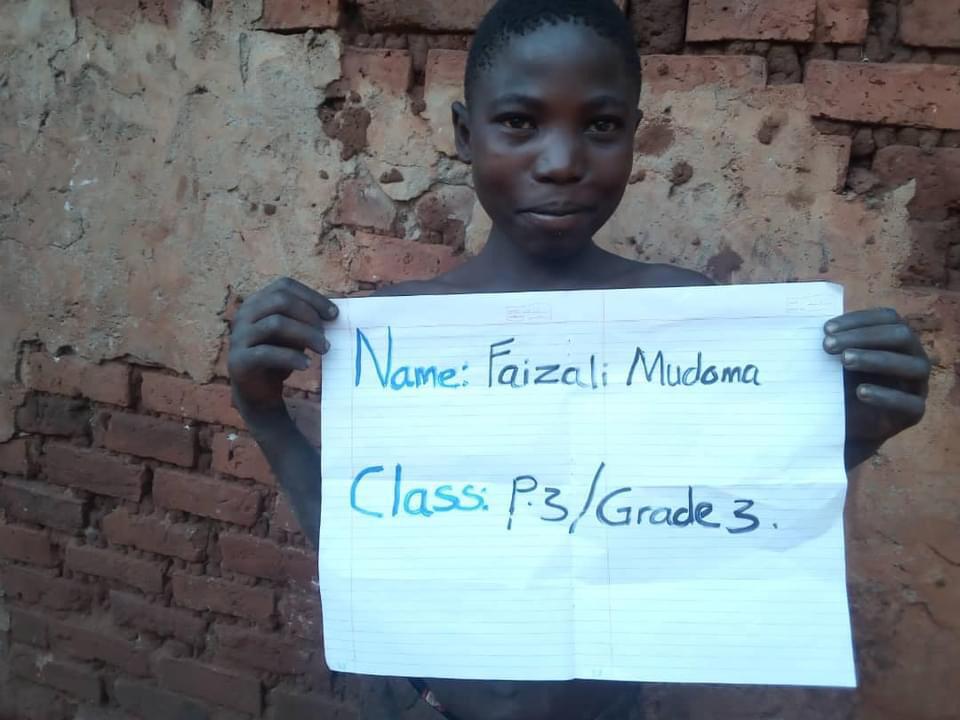 Name: Faizali Mudoma
Class: P.3/Grade 3.